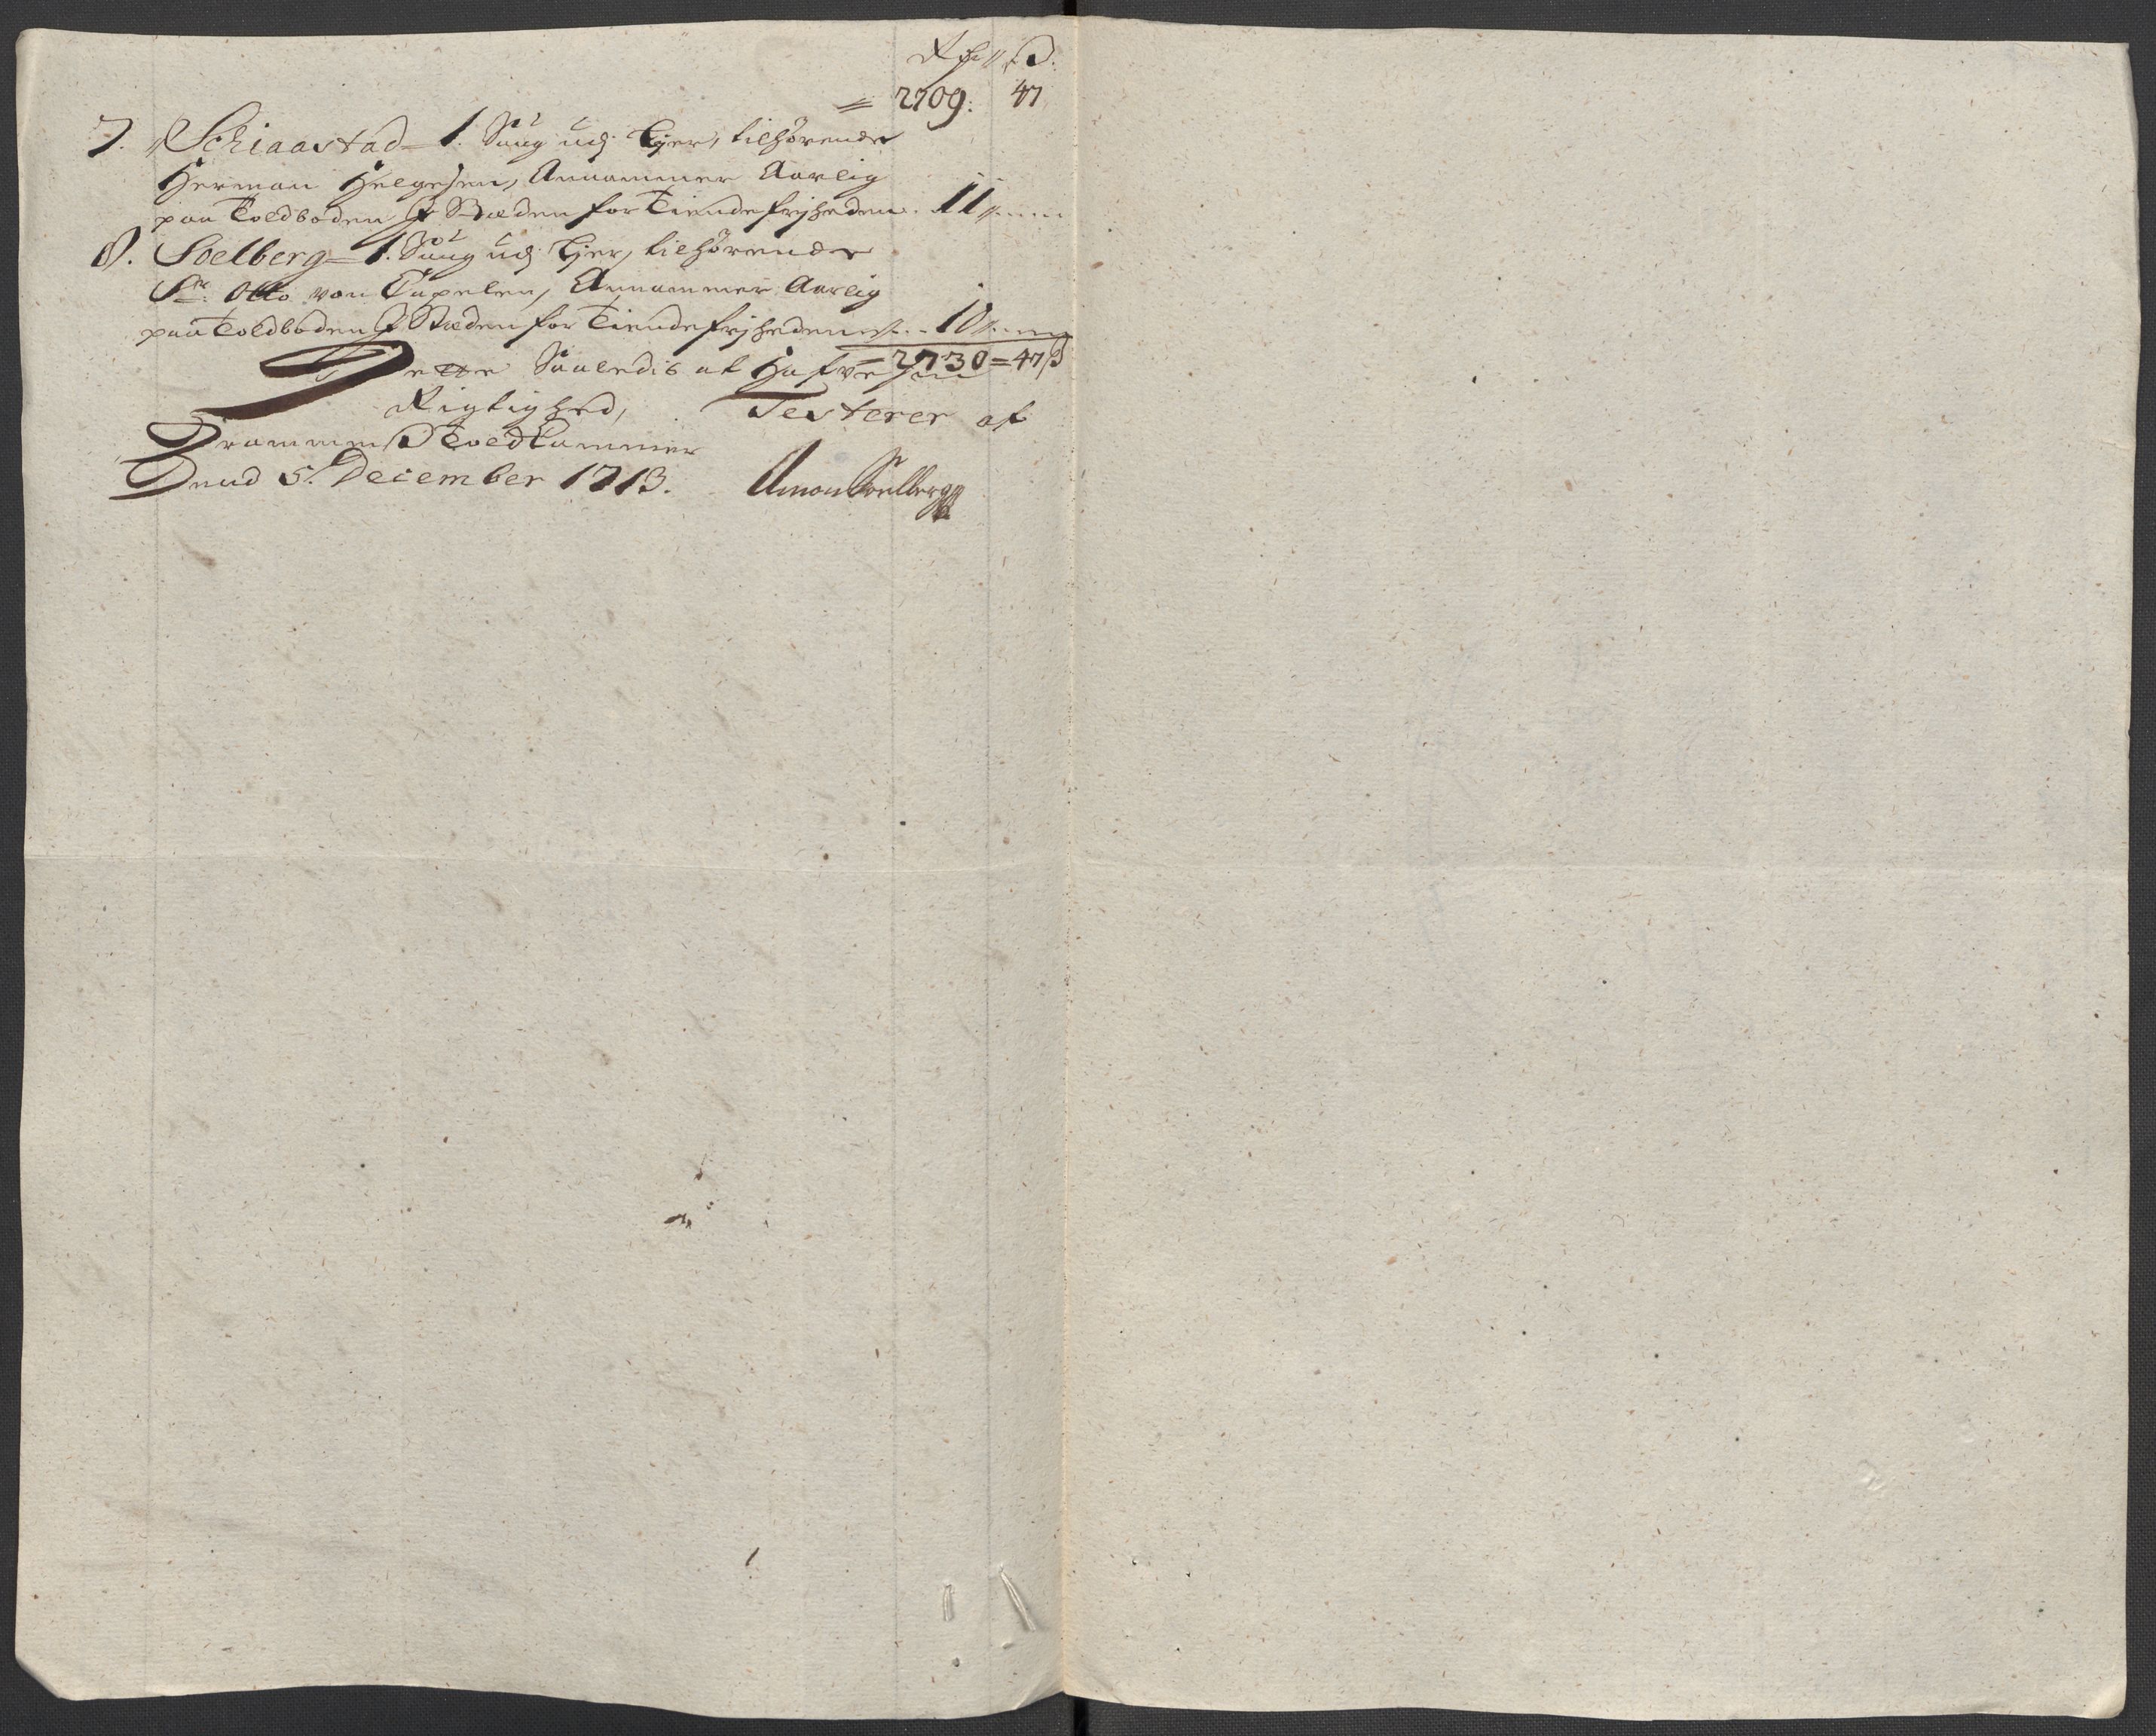 Rdr // ß.
= 2709: 47
7. Schiaastad = 1. Saug udj Ejer, tilhørende
Herman Helgesen, Annammer Aarlig
paa Toldboden J Stæden for Tiende frjheden. 11 //
8. Soelberg = 1. Saug udj Ejer, tilhørende
Sr: Otto von Capelen, Annammer Aarlig
paa Toldboden J Stæden for Tiende frjheden 10 //
= 2730 = 47 ß
Dette Saaledis at Hafve Sin
Rigtighed, Testerer af
Drammens Toldkammer
Dend 5. December 1713. Soelberg